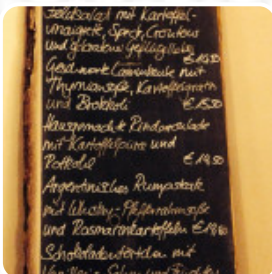 Feldsalat mit Kartoffel-
vinaigrette, Speck, Croutons
und gebratene Geflügelleber
€
Geschmorte Lammkeule mit
Thymiansoße, Kartoffelgratin
und Brokkoli € 15,50
Hausgemachte Rinderroulade
mit Kartoffelpüree und
Rotkohl € 14,50
Argentinisches Rumpsteak
mit Whisky-Pfefferrahmsoße
und Rosmarinkartoffeln €
Schokoladentörtchen mit